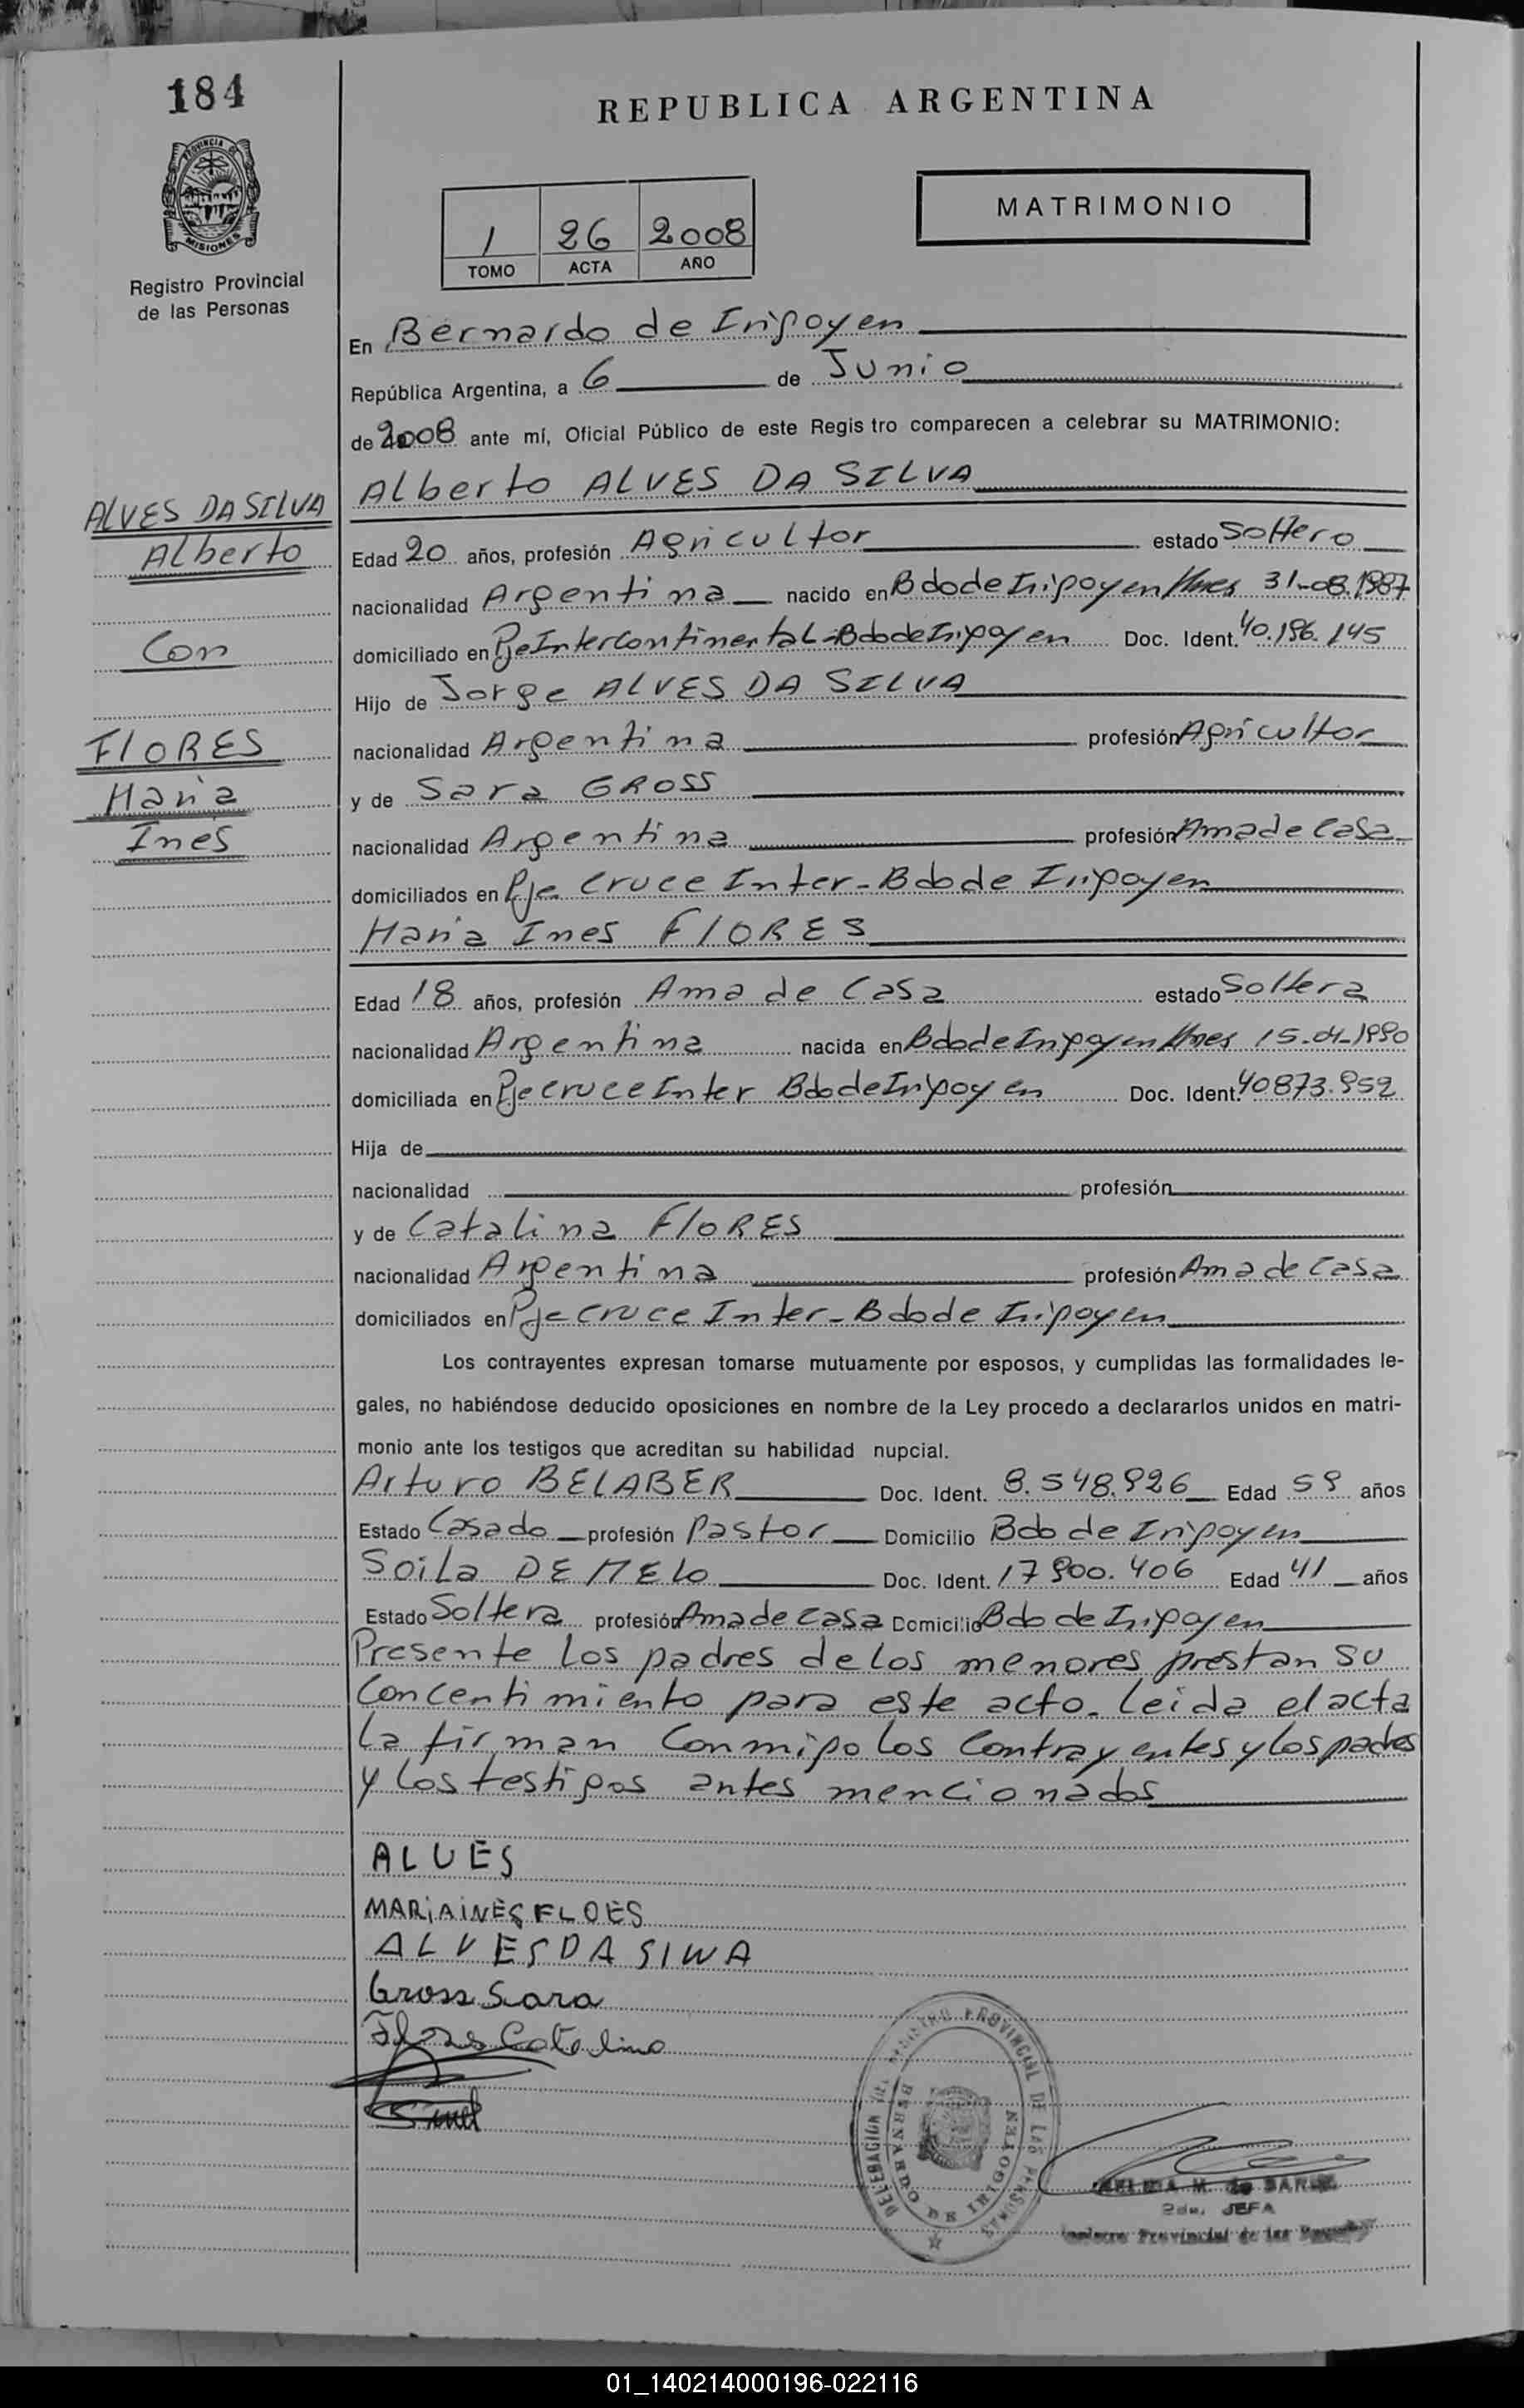 184
REPUBLICA ARGENTINA
PROVINCIA DE
MISIONES
Registro Provincial
de las Personas
1 26 2008
TOMO ACTA AÑO
MATRIMONIO
En Bernardo de Irigoyen
República Argentina, a 6 de Junio
de 2008 ante mí, Oficial Público de este Regis tro comparecen a celebrar su MATRIMONIO:
Alberto ALVES DA SILVA
ALVES DA SILVA
Alberto
Con
FLORES
Maria
Ines
Edad 20 años, profesión Agricultor estado Soltero
nacionalidad Argentina nacido en Bdo de Irigoyen Mnes 31-08.1987
domiciliado en Pje Intercontinental-Bdo de Irigoyen Doc. Ident. 40.196.145
Hijo de Jorge ALVES DA SILVA
nacionalidad Argentina profesión Agricultor
y de Sara GROSS
nacionalidad Argentina profesión Ama de Casa
domiciliados en Pje Cruce Inter-Bdo de Irigoyen
Maria Ines FLORES
Edad 18 años, profesión Ama de Casa estado Soltera
nacionalidad Argentina nacida en Bdo de Irigoyen Mnes 15-04-1990
domiciliada en Pje Cruce Inter Bdo de Irigoyen Doc. Ident. 40873.952
Hija de
nacionalidad profesión
y de Catalina FLORES
nacionalidad Argentina profesión Ama de Casa
domiciliados en Pje Cruce Inter-Bdo de Irigoyen
Los contrayentes expresan tomarse mutuamente por esposos, y cumplidas las formalidades le-
gales, no habiéndose deducido oposiciones en nombre de la Ley procedo a declararlos unidos en matri-
monio ante los testigos que acreditan su habilidad nupcial.
Arturo BELABER Doc. Ident. 8.548.926 Edad 59 años
Estado Casado profesión Pastor Domicilio Bdo de Irigoyen
Soila DE MELO Doc. Ident. 17900.406 Edad 41 años
Estado Soltera profesión Ama de Casa Domicilio Bdo de Irigoyen
Presente los padres de los menores prestan su
Concentimiento para este acto. Leida el acta
la firman Conmigo los Contrayentes y los padres
y los testigos antes mencionados
ALVES
MARiA iNES FLOES
ALVES DA SIWA
Gross Sara
Flores Catalina
DELEGACION DEL REGISTRO PROVINCIAL DE LAS PERSONAS
BERNARDO DE IRIGOYEN
2da. JEFA
Registro Provincial de las Personas
01_140214000196-022116